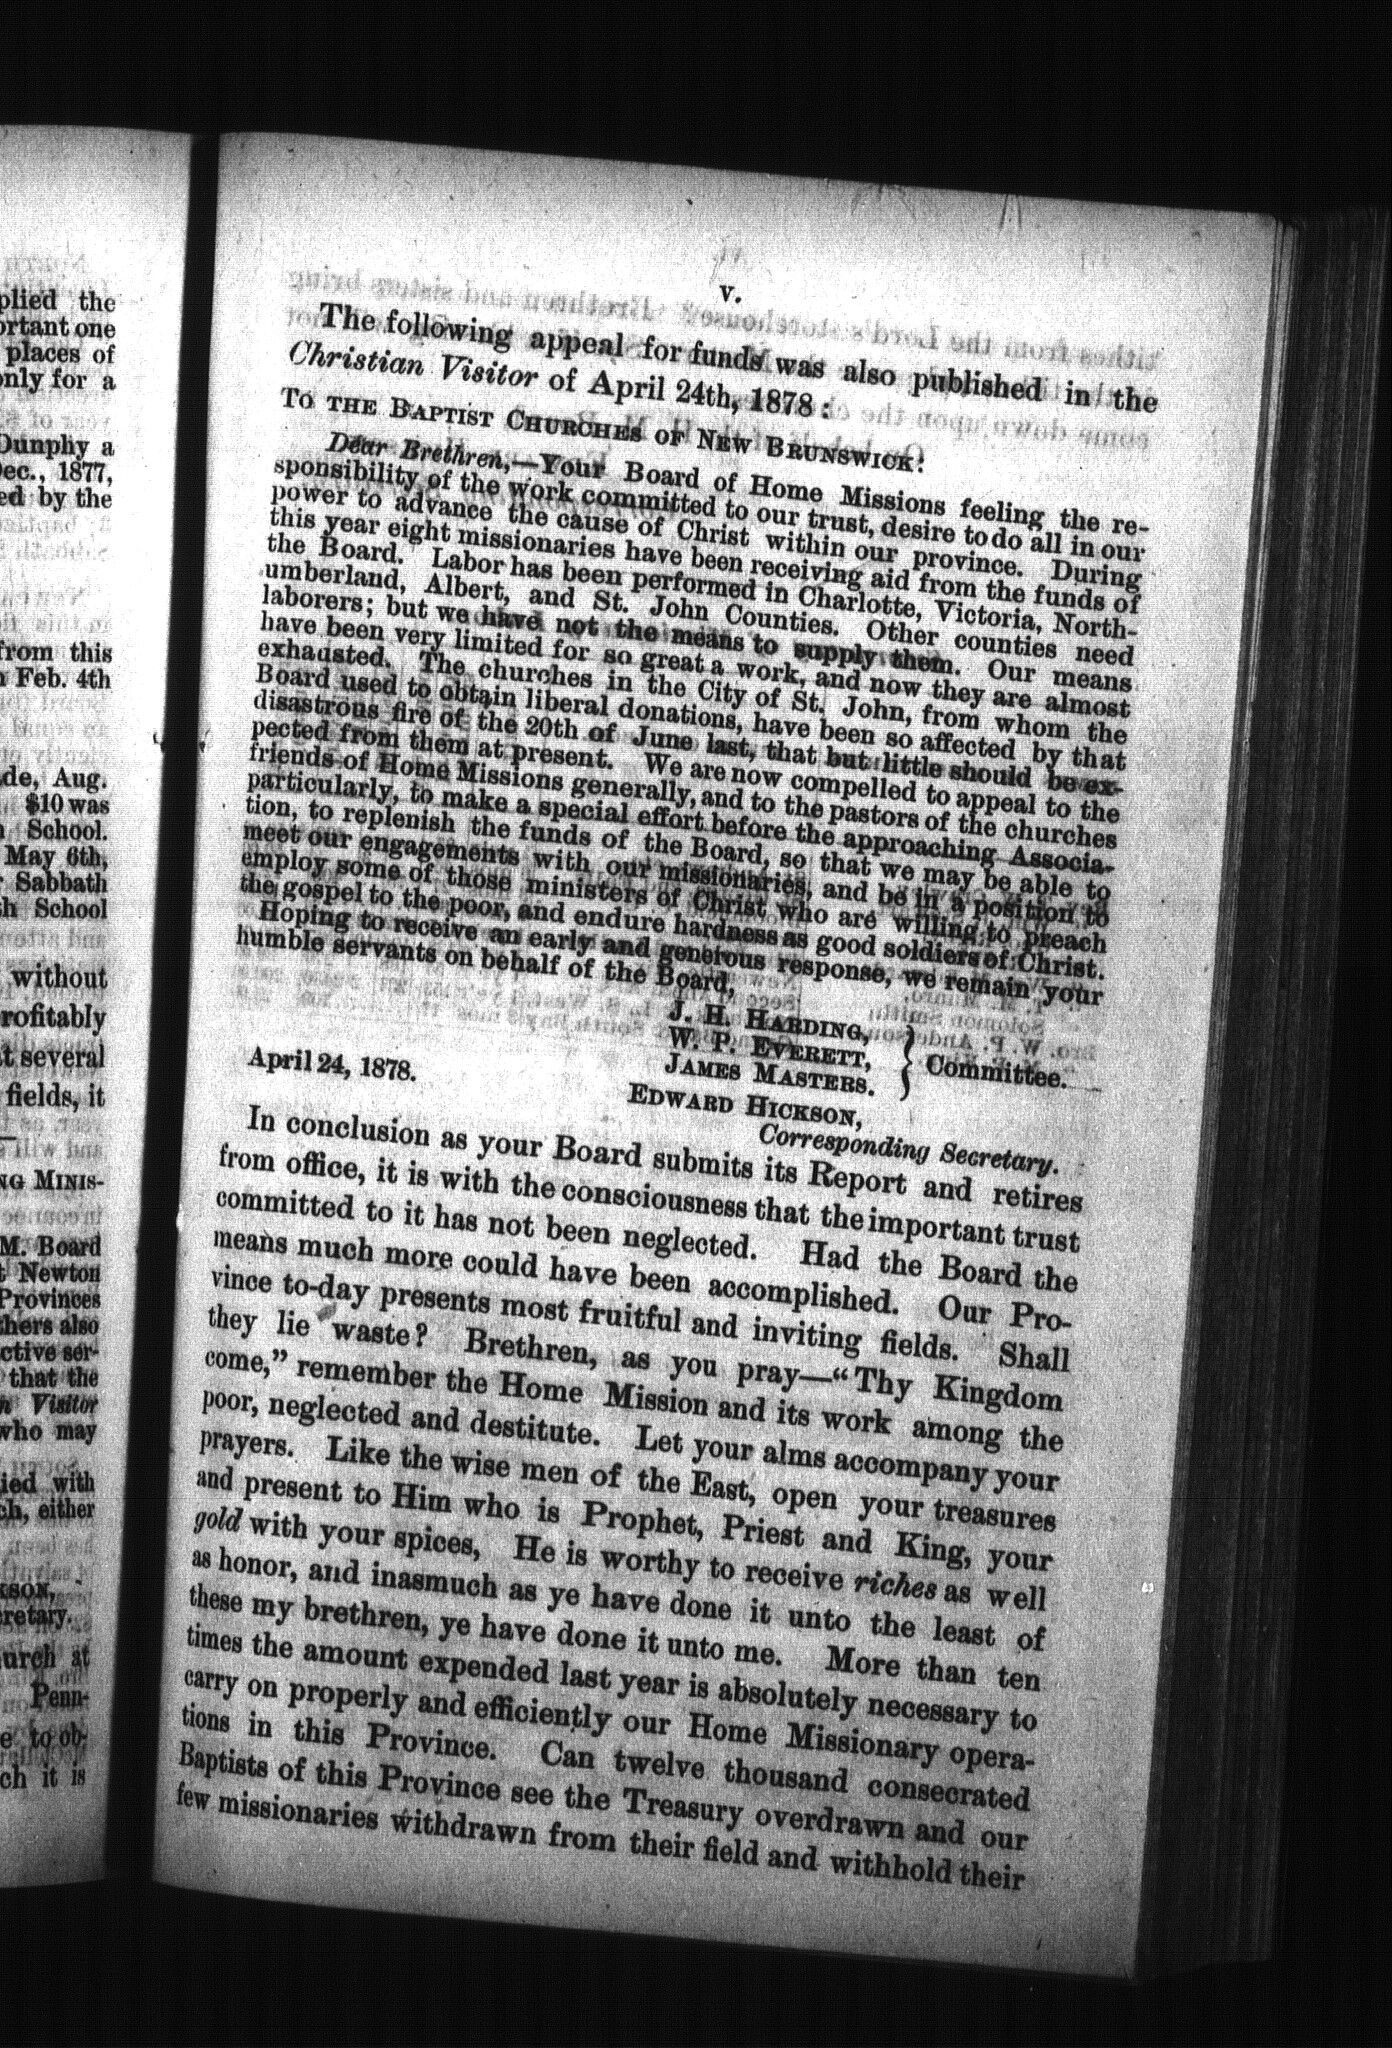 plied the
ortant one
places of
only for a
Dunphy a
Dec., 1877,
ed by the
from this
Feb. 4th
de, Aug.
$10 was
School.
May 6th,
Sabbath
th School
without
rofitably
t several
fields, it
NG MINIS-
M. Board
t Newton
Provinces
thers also
ctive ser-
that the
n Visitor
who may
ied with
ch, either
KSON,
cretary.
urch at
Penn-
e to ob-
ch it is
v.
The following appeal for funds was also published in the
Christian Visitor of April 24th, 1878:
TO THE BAPTIST CHURCHES OF NEW BRUNSWICK:
Dear Brethren,—Your Board of Home Missions feeling the re-
sponsibility of the work committed to our trust, desire to do all in our
power to advance the cause of Christ within our province. During
this year eight missionaries have been receiving aid from the funds of
the Board. Labor has been performed in Charlotte, Victoria, North-
umberland, Albert, and St. John Counties. Other counties need
laborers; but we have not the means to supply them. Our means
have been very limited for so great a work, and now they are almost
exhausted. The churches in the City of St. John, from whom the
Board used to obtain liberal donations, have been so affected by that
disastrous fire of the 20th of June last, that but little should be ex-
pected from them at present. We are now compelled to appeal to the
friends of Home Missions generally, and to the pastors of the churches
particularly, to make a special effort before the approaching Associa-
tion, to replenish the funds of the Board, so that we may be able to
meet our engagements with our missionaries, and be in a position to
employ some of those ministers of Christ who are willing to preach
the gospel to the poor, and endure hardness as good soldiers of Christ.
Hoping to receive an early and generous response, we remain your
humble servants on behalf of the Board,
J. H. HARDING,
W. P. EVERETT,
JAMES MASTERS.
Committee.
EDWARD HICKSON,
Corresponding Secretary.
April 24, 1878.
In conclusion as your Board submits its Report and retires
from office, it is with the consciousness that the important trust
committed to it has not been neglected. Had the Board the
means much more could have been accomplished. Our Pro-
vince to-day presents most fruitful and inviting fields. Shall
they lie waste? Brethren, as you pray—“Thy Kingdom
come,” remember the Home Mission and its work among the
poor, neglected and destitute. Let your alms accompany your
prayers. Like the wise men of the East, open your treasures
and present to Him who is Prophet, Priest and King, your
gold with your spices, He is worthy to receive riches as well
as honor, and inasmuch as ye have done it unto the least of
these my brethren, ye have done it unto me. More than ten
times the amount expended last year is absolutely necessary to
carry on properly and efficiently our Home Missionary opera-
tions in this Province. Can twelve thousand consecrated
Baptists of this Province see the Treasury overdrawn and our
few missionaries withdrawn from their field and withhold their